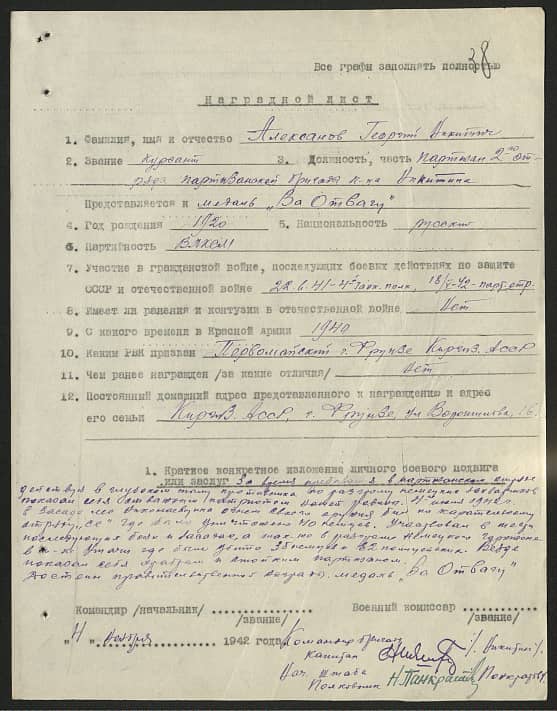 38
Все графы заполнять полностью
Наградной лист
1. Фамилия, имя и отчество Алексанов Георгий Никитич
2. Звание курсант 3. Должность, часть партизан 2го от-
ряда партизанской бригады к-на Никитина
Представляется к медаль „За Отвагу"
4. Год рождения 1920 5. Национальность русский
6. Партийность ВЛКСМ
7. Участие в гражданской войне, последующих боевых действиях по защите
СССР и отечественной войне 22.6.41 - полк, партотр.
8. Имеет ли ранения и контузии в отечественной войне Нет
9. С какого времени в Красной Армии 1940
10. Каким РВК призван Первомайский г. Фрунзе Киргиз. АССР
11. Чем ранее награжден /за какие отличия/ Нет
12. Постоянный домашний адрес представленного к награждению и адрес
его семьи Киргиз. АССР, г. Фрунзе, ул Ворошилова,
1. Краткое конкретное изложение личного боевого подвига
или заслуг За время пребывания в партизанском отряде
действуя в глубоком тылу противника по разгрому немецких оккупантов
показал себя отважным патриотом нашей родины. июня 1942 г.
в засаде огнем своего оружия бил по карательному
отряду „СС" где было уничтожено 40 немцев. Участвовал в
последующих боях и засадах, а так же в разгроме немецкого гарнизона
в где было убито 35 немцев и 32 полицейских. Везде
показал себя храбрым и стойким партизаном.
Достоин правительственной награды медаль „За Отвагу"
Командир /начальник/ Военный комиссар
/звание/ /звание/
" 4 " ноября 1942 года Командир бригады
капитан /Никитин/
Нач. штаба
Полковник Н. Панкратов Панкратов